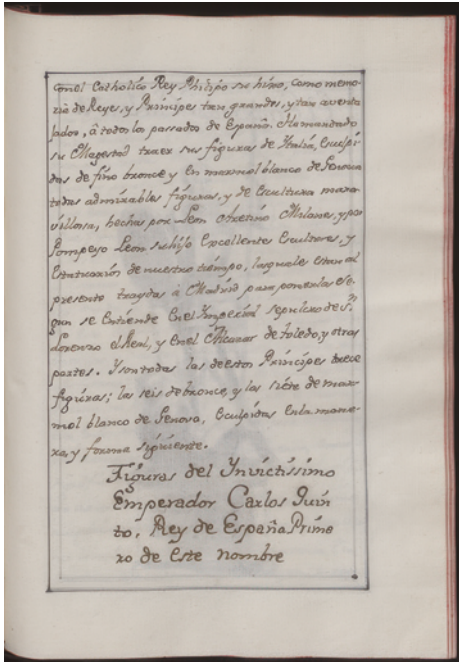 con el Catholico Rey Philipo su hiño, como memo-
ria de Reyes, y Prinçipes tan grandes, y tan aventa
jados, â todos los passados de España. Ha mandado
su Magestad traer sus figuras de Italia, Esculpi-
das de fino bronce y en marmol blanco de Genova
todas admirables figuras, y de Escultura mara-
villosa, hechas por Leon Aretino Milanes, y por
Pompeyo Leon su hijo Excellentes Escultores, y
Estatuarios de nuestro tiempo, las quales estan al
presente traydas à Madrid para ponerlas se-
gun se Entiende En el Imperial sepulcro de S.n
Lorenzo el Real, y en el Alcazar de toledo, y otras
partes. Y son todas las de estos Principes trece
figuras; las seis de bronce, y las siete de mar-
mol blanco de Genova, Esculpidas en la mane-
ra, y forma siguiente.
Figuras del Ynvictissimo
Emperador Carlos Quin
to, Rey de España Prime
ro de Este nombre